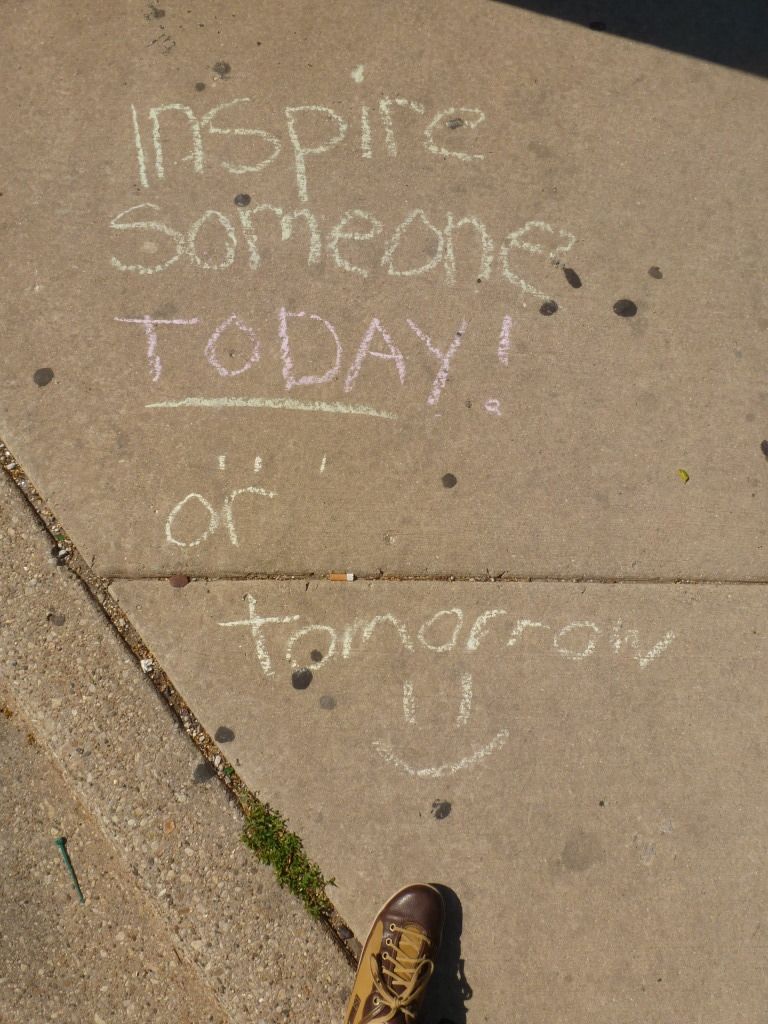 inspire
someone
TODAY!
or
tomorrow